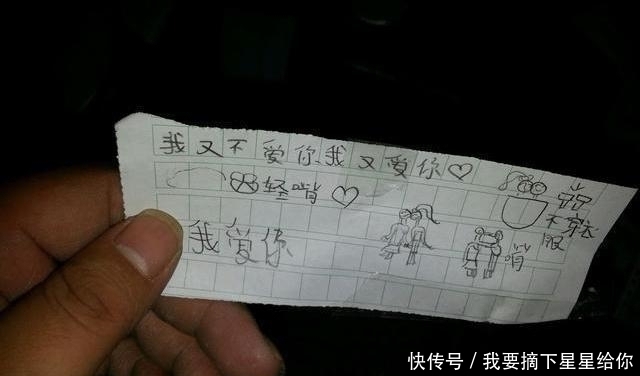 我又不爱你我又爱你♡
轻啃♡
我爱你
不穿衣
服
啃
快传号/我要摘下星星给你